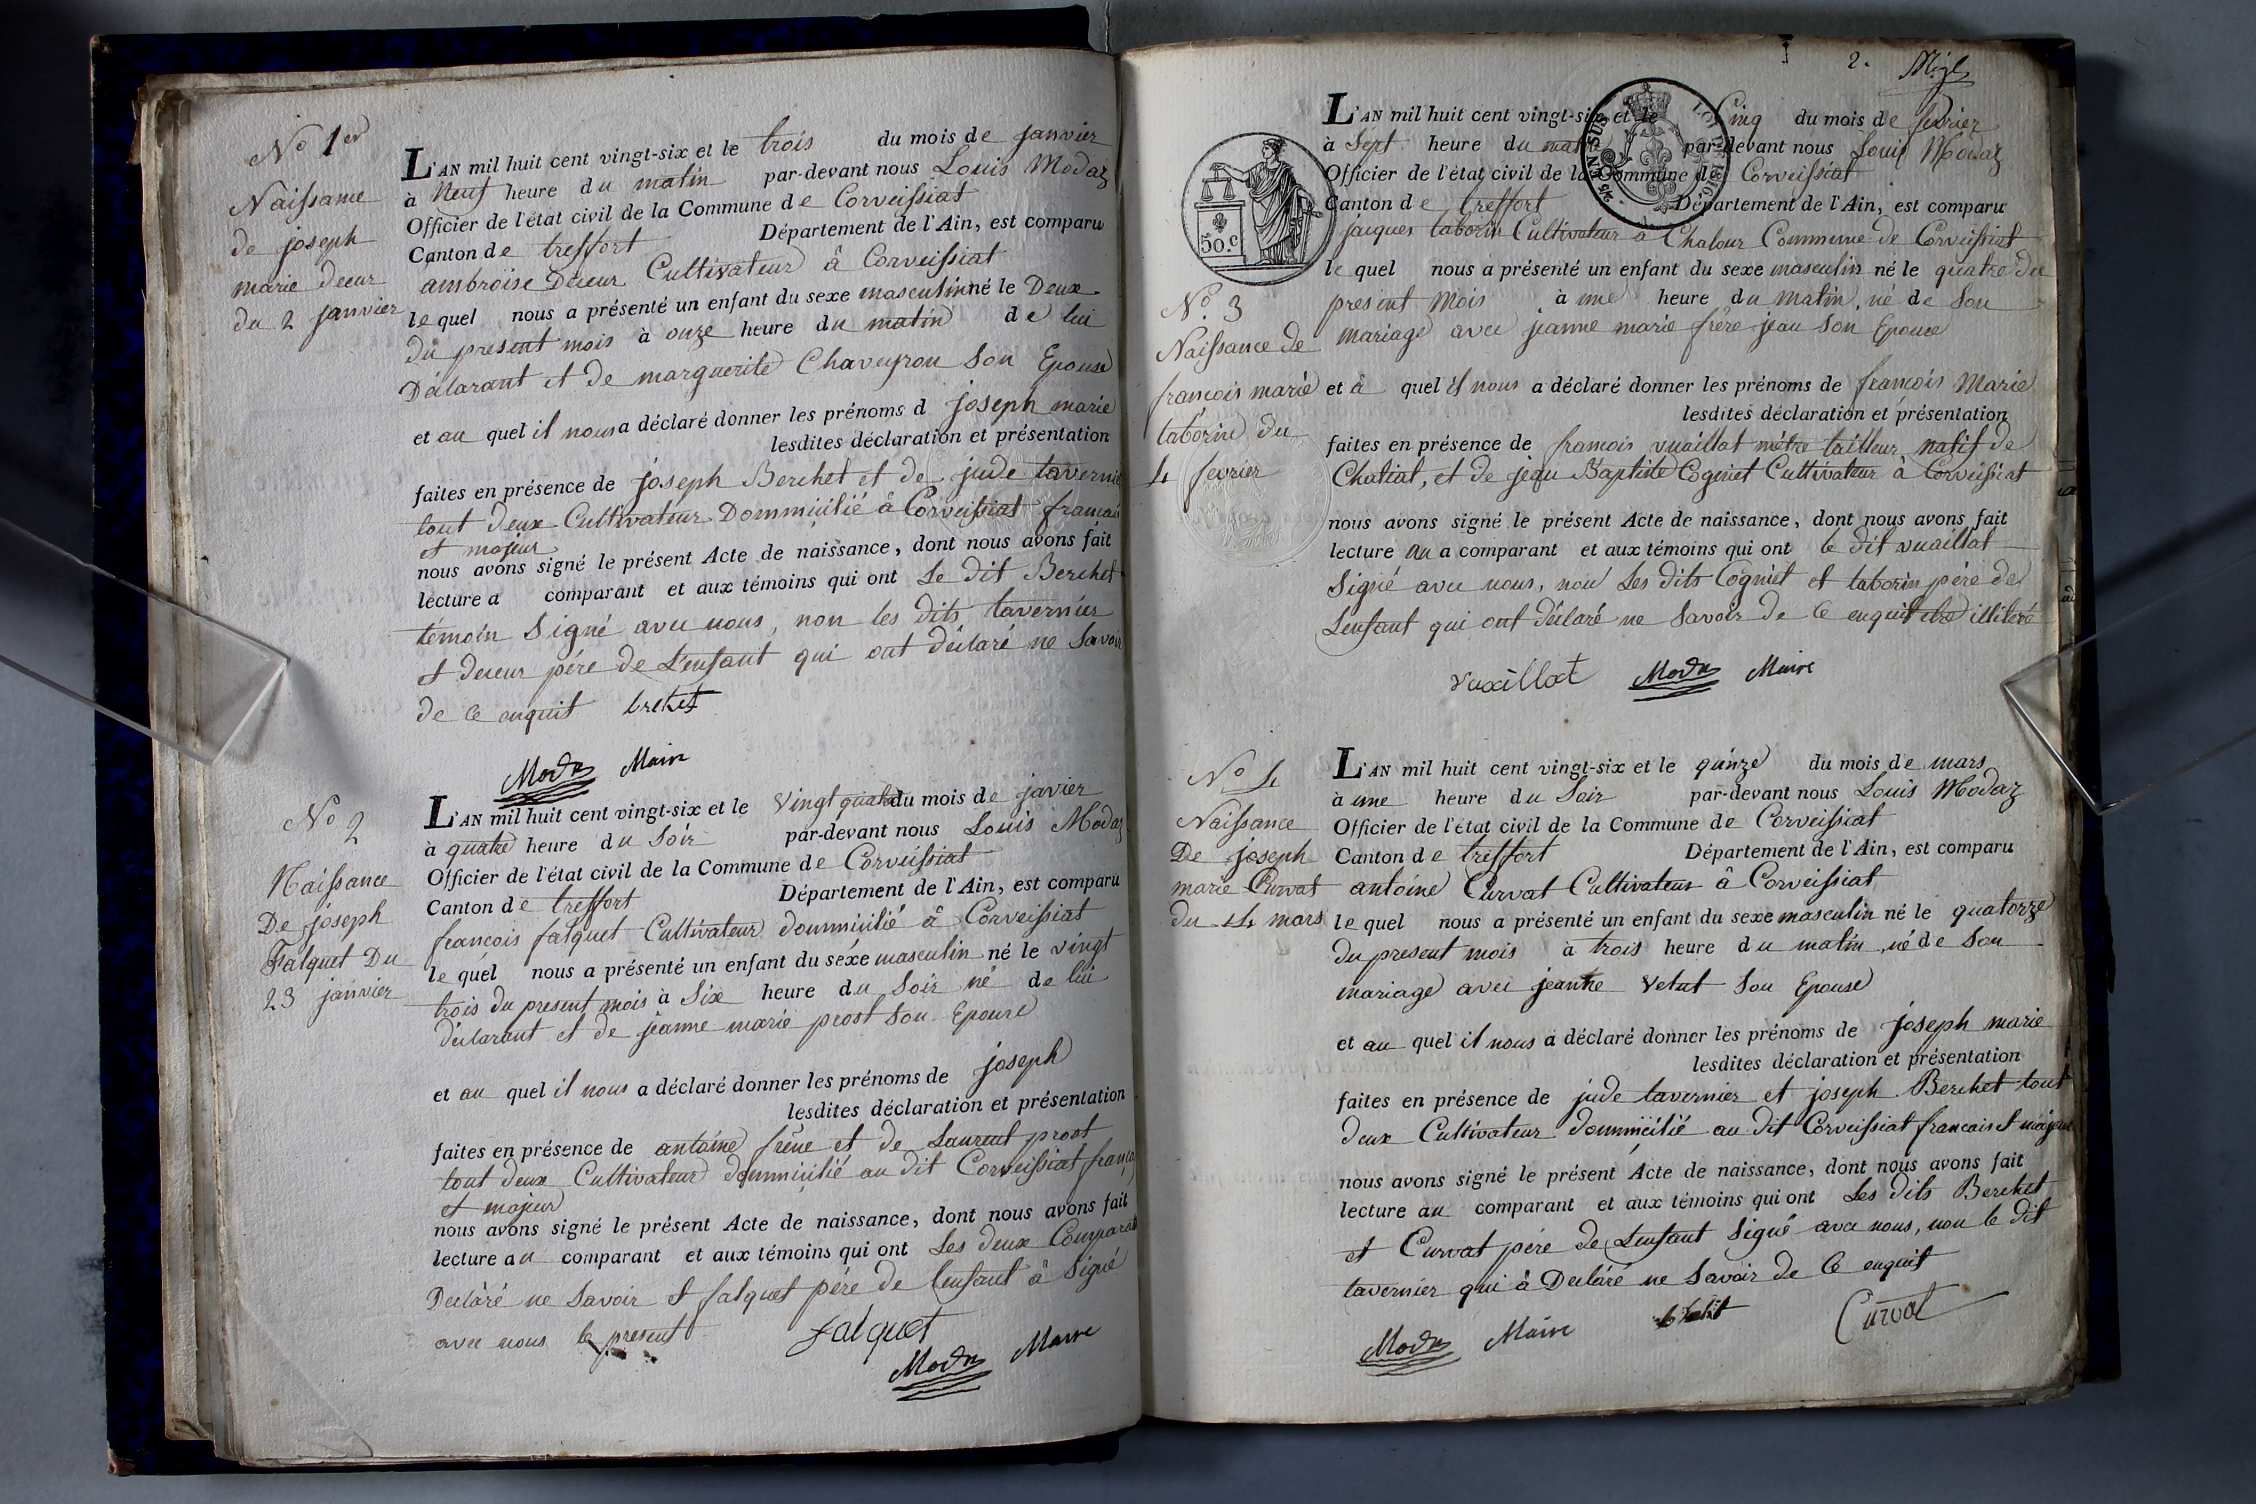 No 1er
Naissance
de joseph
marie deeur
du 2 janvier
L'AN mil huit cent vingt-six et le trois du mois de janvier
à Neuf heure du matin par-devant nous Louis Modaz
Officier de l'état civil de la Commune de Corveissiat
Canton de treffort Département de l'Ain, est comparu
ambroise Deeur Cultivateur à Corveissiat
le quel nous a présenté un enfant du sexe masculin né le Deux
du present mois à onze heure du matin de lui
Déclarant et de marguerite Chaveyron Son Epouse
et au quel il nous a déclaré donner les prénoms d joseph marie
lesdites déclaration et présentation
faites en présence de joseph Berchet et de jude tavernier
tout deux Cultivateur Dommicilié à Corveissiat francais
et majeur
nous avons signé le présent Acte de naissance, dont nous avons fait
lecture a comparant et aux témoins qui ont Le dit Berchet
témoin Signé avec nous, non les dits tavernier
et deeur pére de L'enfant qui ont déclaré ne Savoir
de ce enquit brehet
Modas Maire
No 2
Naissance
De joseph
Falquet Du
23 janvier
L'AN mil huit cent vingt-six et le Vingt quatre du mois de javier
à quatre heure du Soir par-devant nous Louis Modaz
Officier de l'état civil de la Commune de Corveissiat
Canton de treffort Département de l'Ain, est comparu
francois falquet Cultivateur dommicilié à Corveissiat
le quel nous a présenté un enfant du sexe masculin né le vingt
trois du present mois à Six heure du Soir né de lui
déclarant et de jeanne marie prost Son Epouse
et au quel il nous a déclaré donner les prénoms de joseph
lesdites déclaration et présentation
faites en présence de antoine frene et de Laurent prost
tout deux Cultivateur dommicilié au dit Corveissiat français
et majeur
nous avons signé le présent Acte de naissance, dont nous avons fait
lecture au comparant et aux témoins qui ont Les deux Comparant
Declàré ne Savoir et falquet pére de l'enfant à Signé
avec nous le present
Falquet
Modas Maire
2.
L'AN mil huit cent vingt-six et le Cinq du mois de fevrier
à Sept heure du matin par-devant nous Louis Modaz
Officier de l'état civil de la Commune de Corveissiat
Canton de treffort Département de l'Ain, est comparu
50.c
jacques taborin Cultivateur à Chalour Commune de Corveissiat
le quel nous a présenté un enfant du sexe masculin né le quatre du
present Mois à une heure du matin, né de Son
mariage avec jeanne marie frére jean Son Epouse
No. 3
Naissance de
francois marie
taborin du
4 fevrier
et à quel il nous a déclaré donner les prénoms de francois Marie
lesdites déclaration et présentation
faites en présence de francois vuaillat métre tailleur, natif de
Chatiat, et de jean Baptiste Cogniet Cultivateur à Corveissiat
nous avons signé le présent Acte de naissance, dont nous avons fait
lecture au a comparant et aux témoins qui ont le dit vuaillat
Signé avec nous, non Les dits Cogniet et taborin pére de
Lenfant qui ont déclaré ne Savoir de Ce enquit etre illiteré
vuaillat Modas Maire
No 4
Naissance
De joseph
marie Curvat
du 14 mars
L'AN mil huit cent vingt-six et le quinze du mois de mars
à une heure du Soir par-devant nous Louis Modaz
Officier de l'état civil de la Commune de Corveissiat
Canton de treffort Département de l'Ain, est comparu
antoine Curvat Cultivateur à Corveissiat
le quel nous a présenté un enfant du sexe masculin né le quatorze
du present mois à trois heure du matin, né de Son
mariage avec jeanne Vetut Son Epouse
et au quel il nous a déclaré donner les prénoms de joseph marie
lesdites déclaration et présentation
faites en présence de jude tavernier et joseph Berchet tout
deux Cultivateur dommicilié au dit Corveissiat francais et majeur
nous avons signé le présent Acte de naissance, dont nous avons fait
lecture au comparant et aux témoins qui ont Les dits Berchet
et Curvat pére de L'enfant Signé avec nous, non le dit
tavernier qui à Declàré ne Savoir de Ce enquit
Modas Maire Curvat